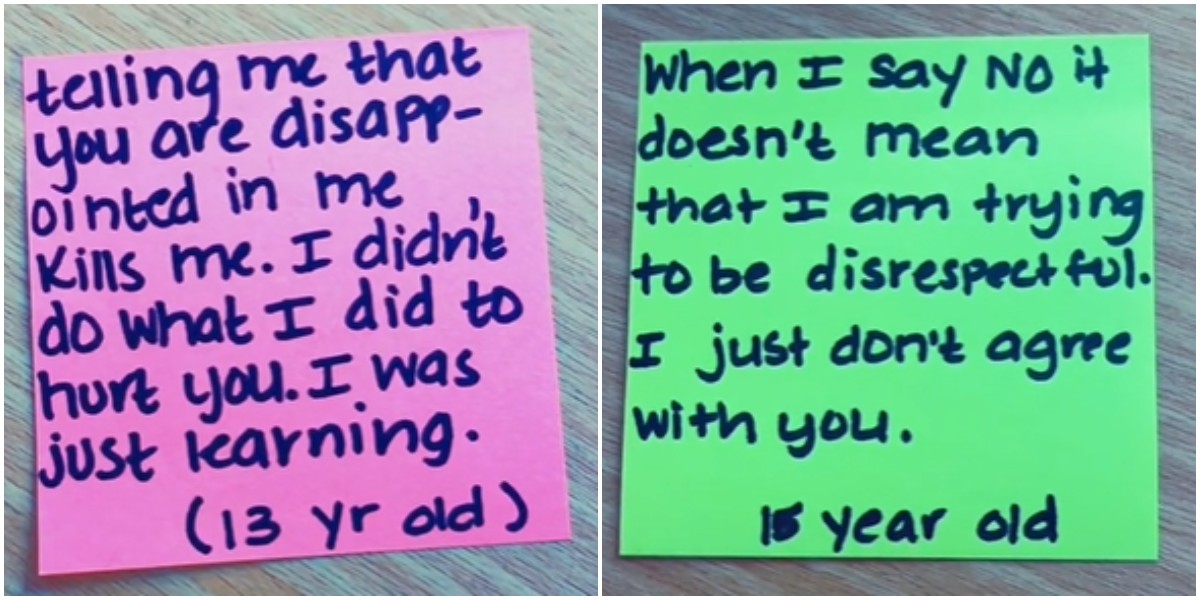 telling me that
you are disapp-
ointed in me
kills me. I didn't
do what I did to
hurt you. I was
just learning.
(13 yr old)
When I say NO it
doesn't mean
that I am trying
to be disrespectful.
I just don't agree
with you.
15 year old